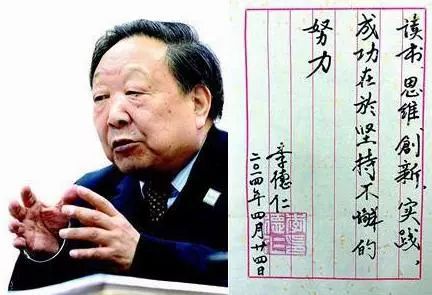 读书、思维、創新、实践,
成功在於坚持不懈的
努力
李德仁
二〇一四年四月廿四日